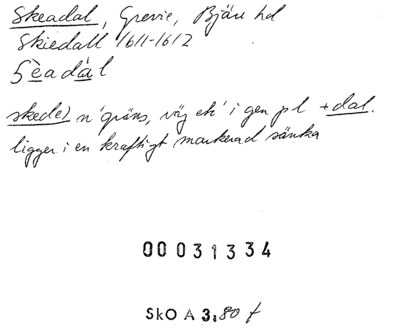 Skeadal, Grevie, Bjäre hd
Skiedall 1611-1612
Sèadàl
skede) n 'gräns, väg etc' i gen pl + dal.
ligger i en kraftigt markerad sänka
00031334
SkO A 3:80 f